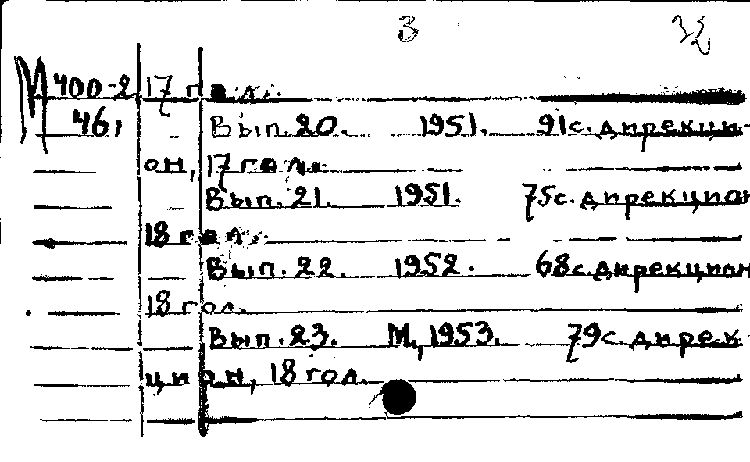 3 32
М 400-2 17 гол.
46, Вып. 20. 1951. 91с. дирекци-
он, 17 гол.
Вып. 21. 1951. 75с. дирекцион
18 гол.
Вып. 22. 1952. 68с. дирекцион
18 гол.
Вып. 23. М., 1953. 79с дирек-
цион, 18 гол.